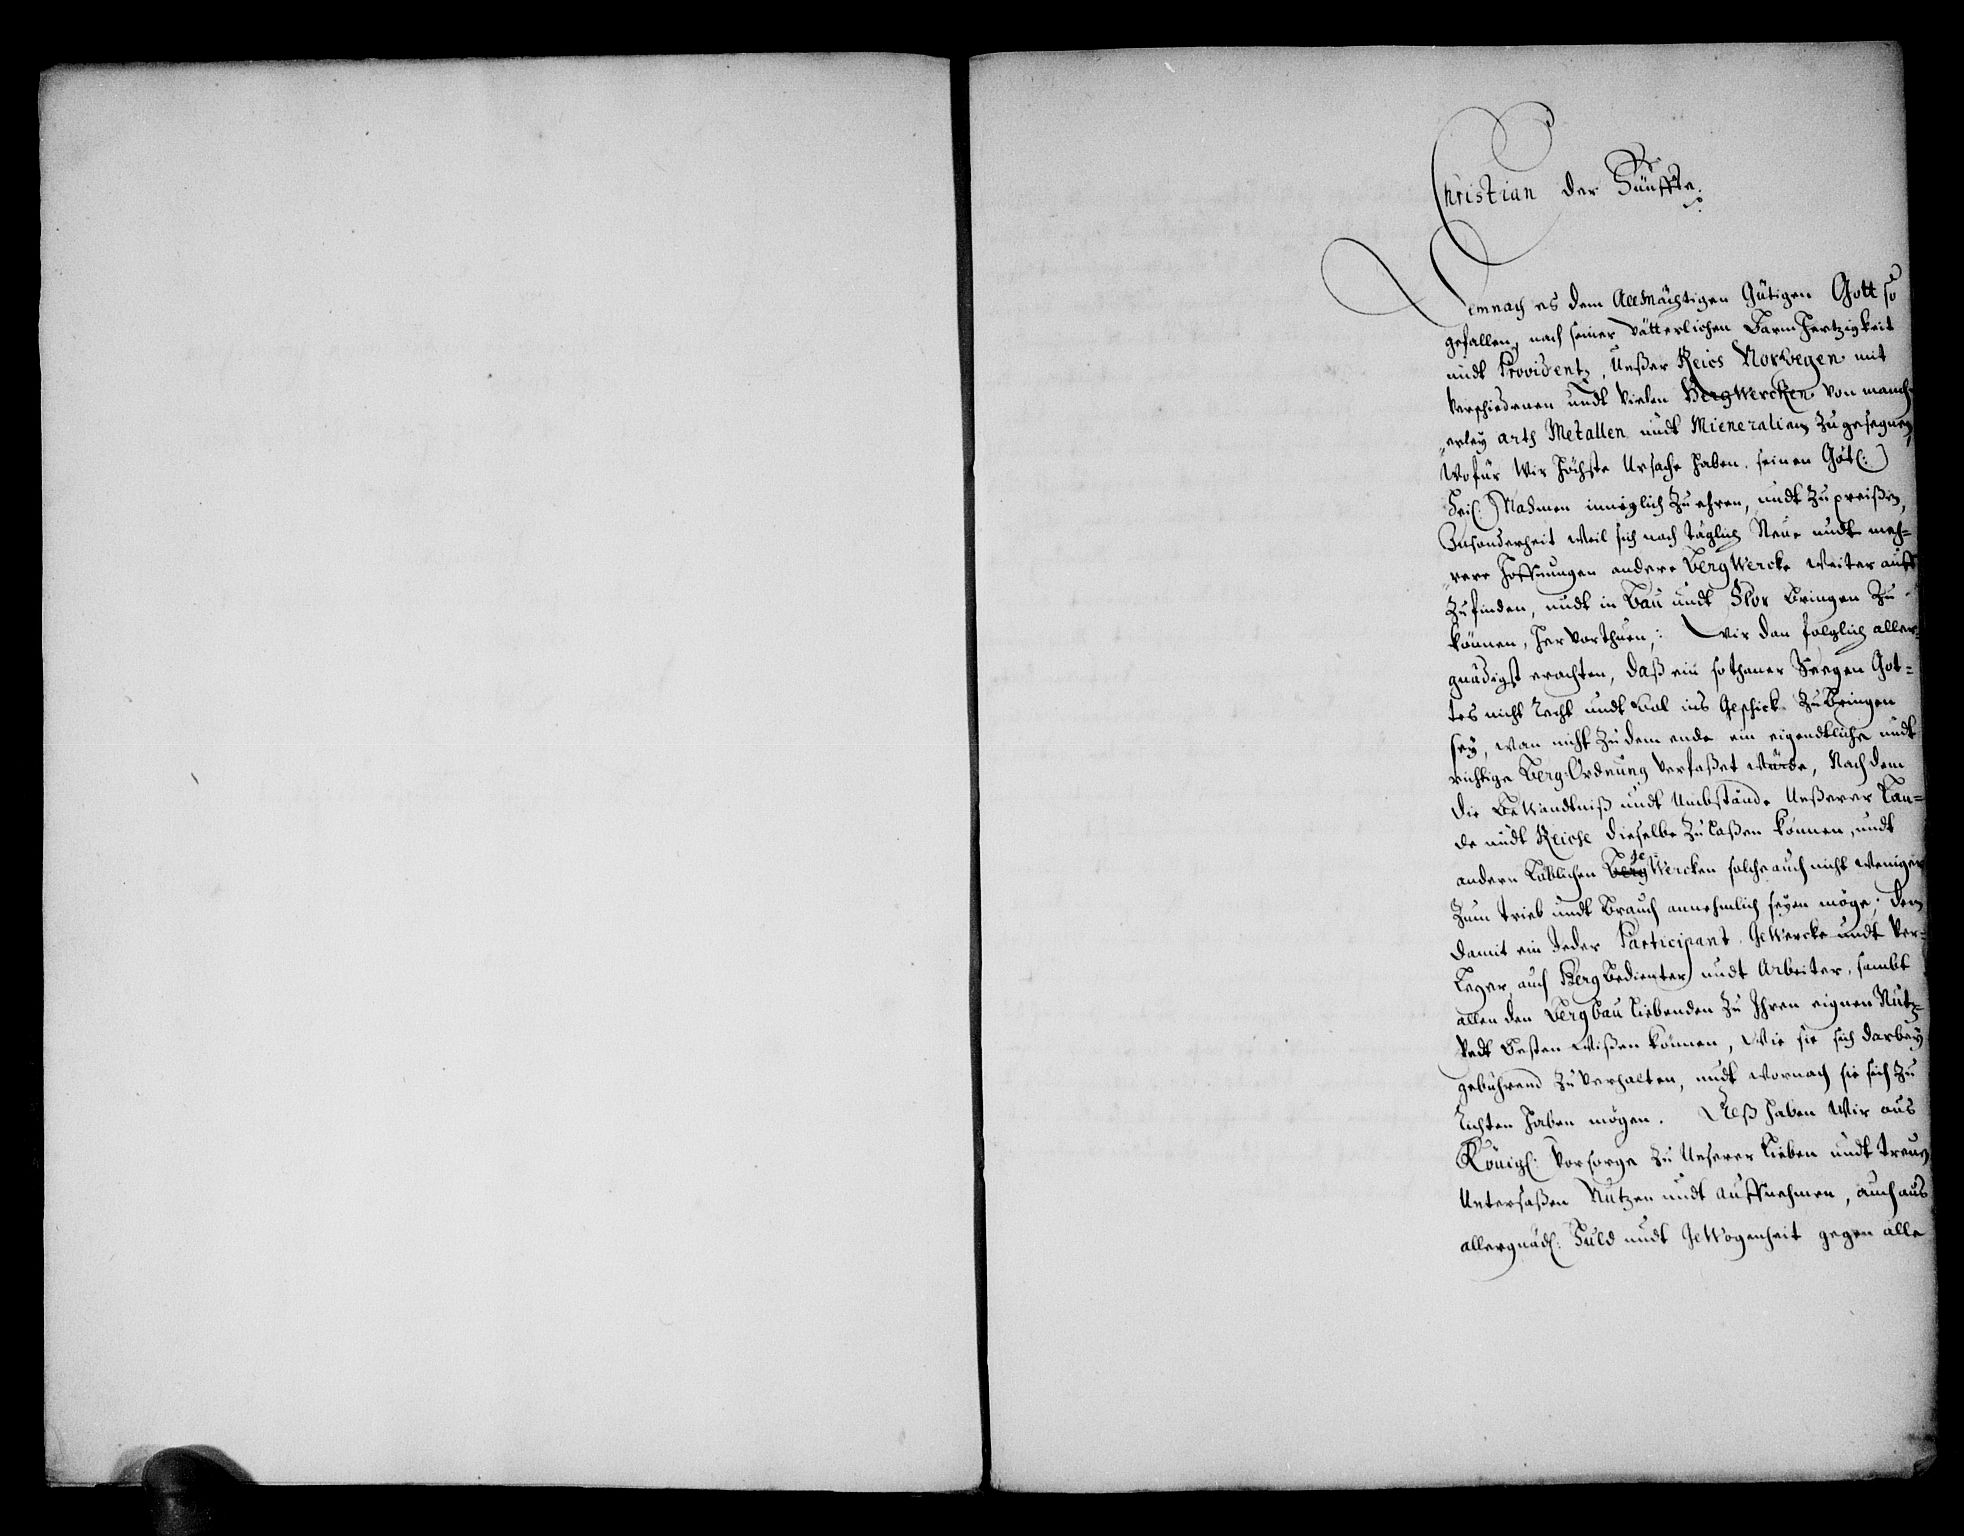 Christian der Fünffte.
Demnach es dem Allmächtigen Gütigen Gott so
gefallen, nach seiner Vätterlichen Barmhertzigkeit
undt Providentz, Unßer Reich Norwegen mit
Verschiedenen undt Vielen BergWercken von manch-
erley arth Metallen undt Mieneralien zu gesegnen,
Wofür Wir Höchste Ursache haben, seinen Götl:
Heil: Nahmen inniglich zu ehren, undt zu preißen,
Insonderheit weil sich noch täglich Neue undt meh-
rere Hoffnungen andere BergWercke weiter auff
zufinden, undt in Bau undt Flor bringen zu
können, hervorthuen; Wir dan folglich aller-
gnädigst erachten, daß ein sothaner Seegen Got-
tes nicht recht undt wol ins Geschick zu bringen
sey, wan nicht zu dem ende ein eigendtliche undt
richtige Berg-Ordnung verfaßet würde, Nach dem
die Bewandtniß undt Umbstände Unßerer Lan-
de undt Reiche dieselbe zulaßen können, undt
andern Löblichen Berg Ge Wercken solche auch nicht weniger
zum trieb undt Brauch annehmlich seyen möge; Dem
damit ein Jeder Participant, GeWercke undt Ver-
Leger, auch Berg Bedienter undt Arbeiter, sambt
allen den Bergbau liebenden zu Ihren eignen Nutz
undt besten wißen können, Wie sie sich darbey
gebührend zu verhalten, undt wornach sie sich zu
richten haben mögen. Deß haben Wir aus
Königl: Vorsorge zu Unserer Lieben undt treuen
Untersaßen Nutzen undt auffnehmen, auch aus
allergnäd: Huld undt GeWogenheit gegen alle